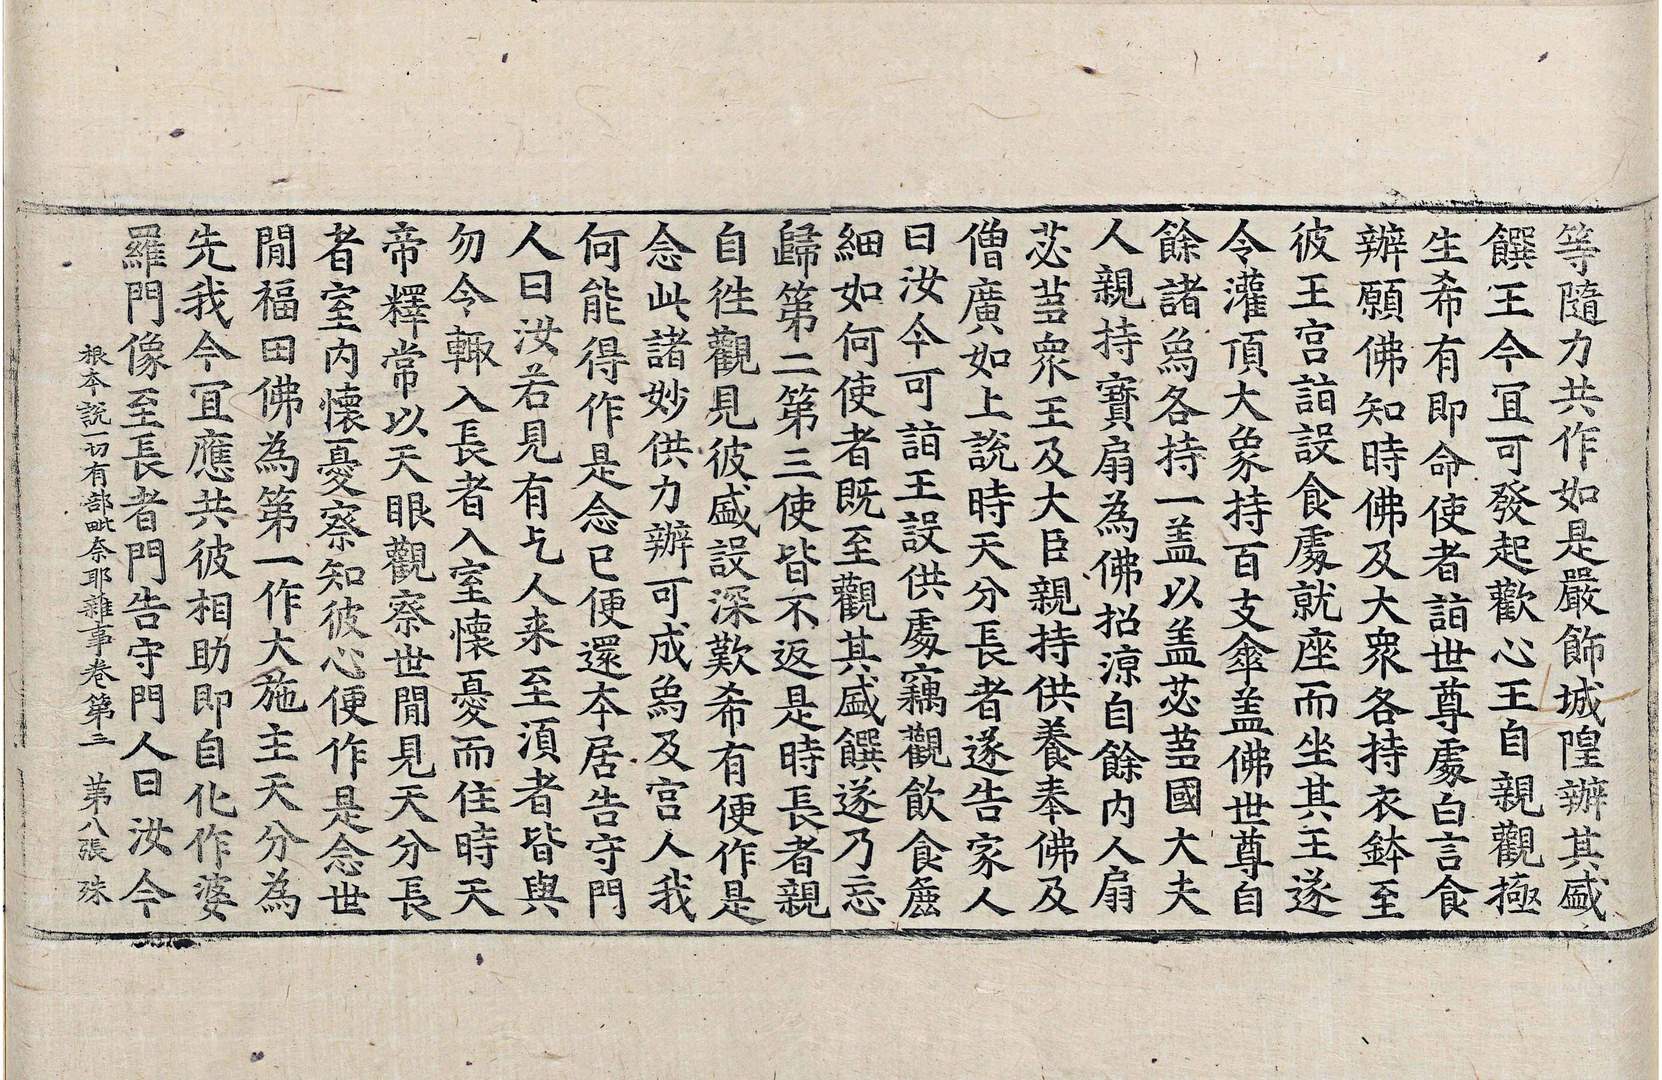 等隨力共作如是嚴飾城隍辦其盛
饌王今冝可發起歡心王自親觀極
生希有即命使者詣世尊處白言食
辦願佛知時佛及大衆各持衣鉢至
彼王宮詣設食處就座而坐其王遂
令灌頂大象持百支傘蓋佛世尊自
餘諸烏各持一蓋以蓋苾蒭國大夫
人親持寶扇為佛招涼自餘內人扇
苾蒭衆王及大臣親持供養奉佛及
僧廣如上說時天分長者遂告家人
曰汝今可詣王設供處竊觀飲食麁
細如何使者旣至觀其盛饌遂乃忘
歸第二第三使皆不返是時長者親
自徃觀見彼盛設深歎希有便作是
念此諸妙供力辦可成烏及宮人我
何能得作是念已便還本居告守門
人曰汝若見有乞人来至湏者皆與
勿令輙入長者入室懷憂而住時天
帝釋常以天眼觀察世閒見天分長
者室内懷憂察知彼心便作是念世
閒福田佛為第一作大施主天分為
先我今冝應共彼相助即自化作婆
羅門像至長者門告守門人曰汝今
根本說一切有部毗奈耶雜事卷第二 苐八張 殊